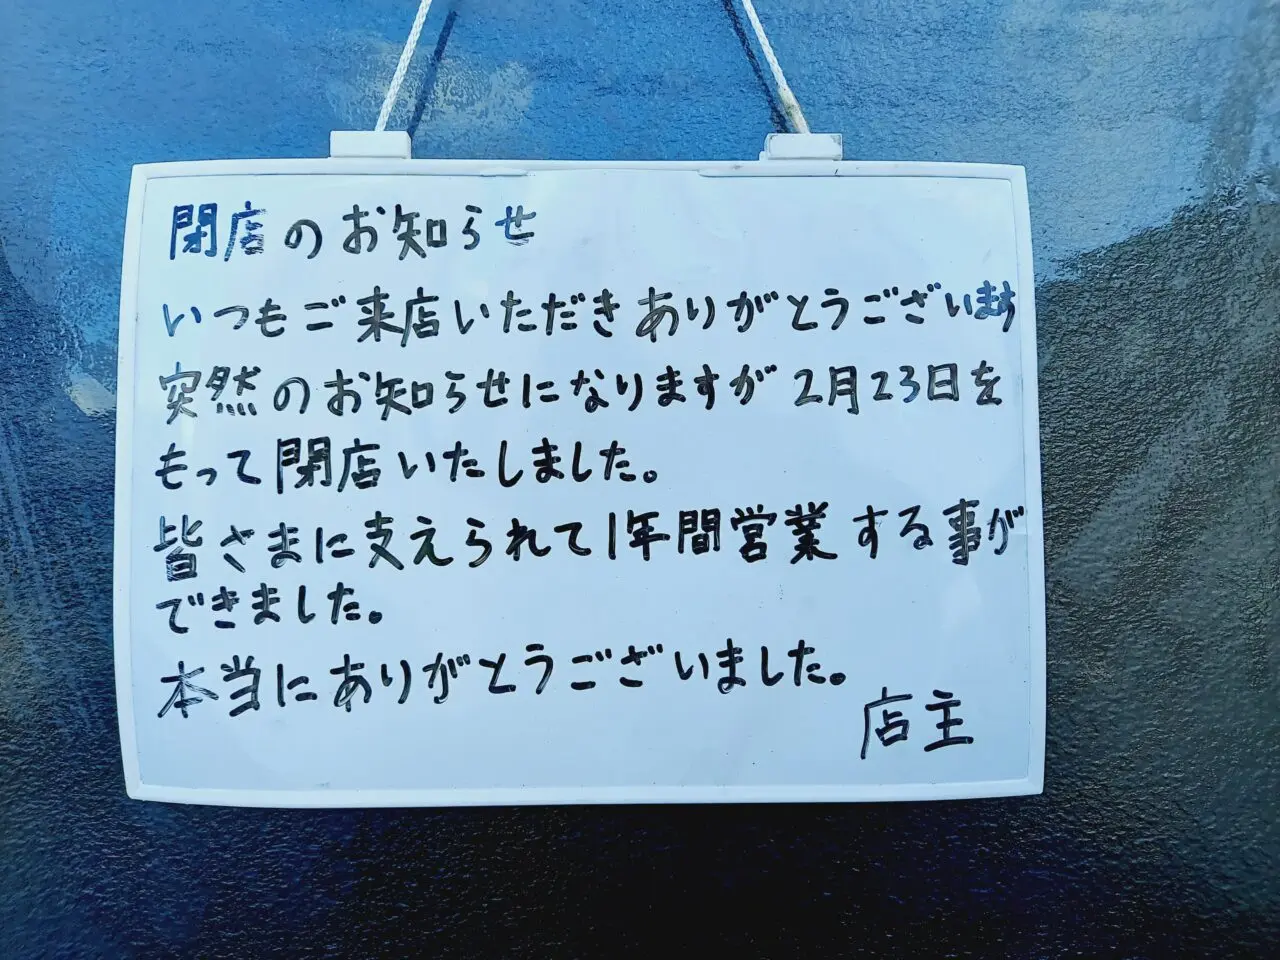 閉店のお知らせ
いつもご来店いただきありがとうございます
突然のお知らせになりますが2月23日を
もって閉店いたしました。
皆さまに支えられて1年間営業する事が
できました。
本当にありがとうございました。
店主